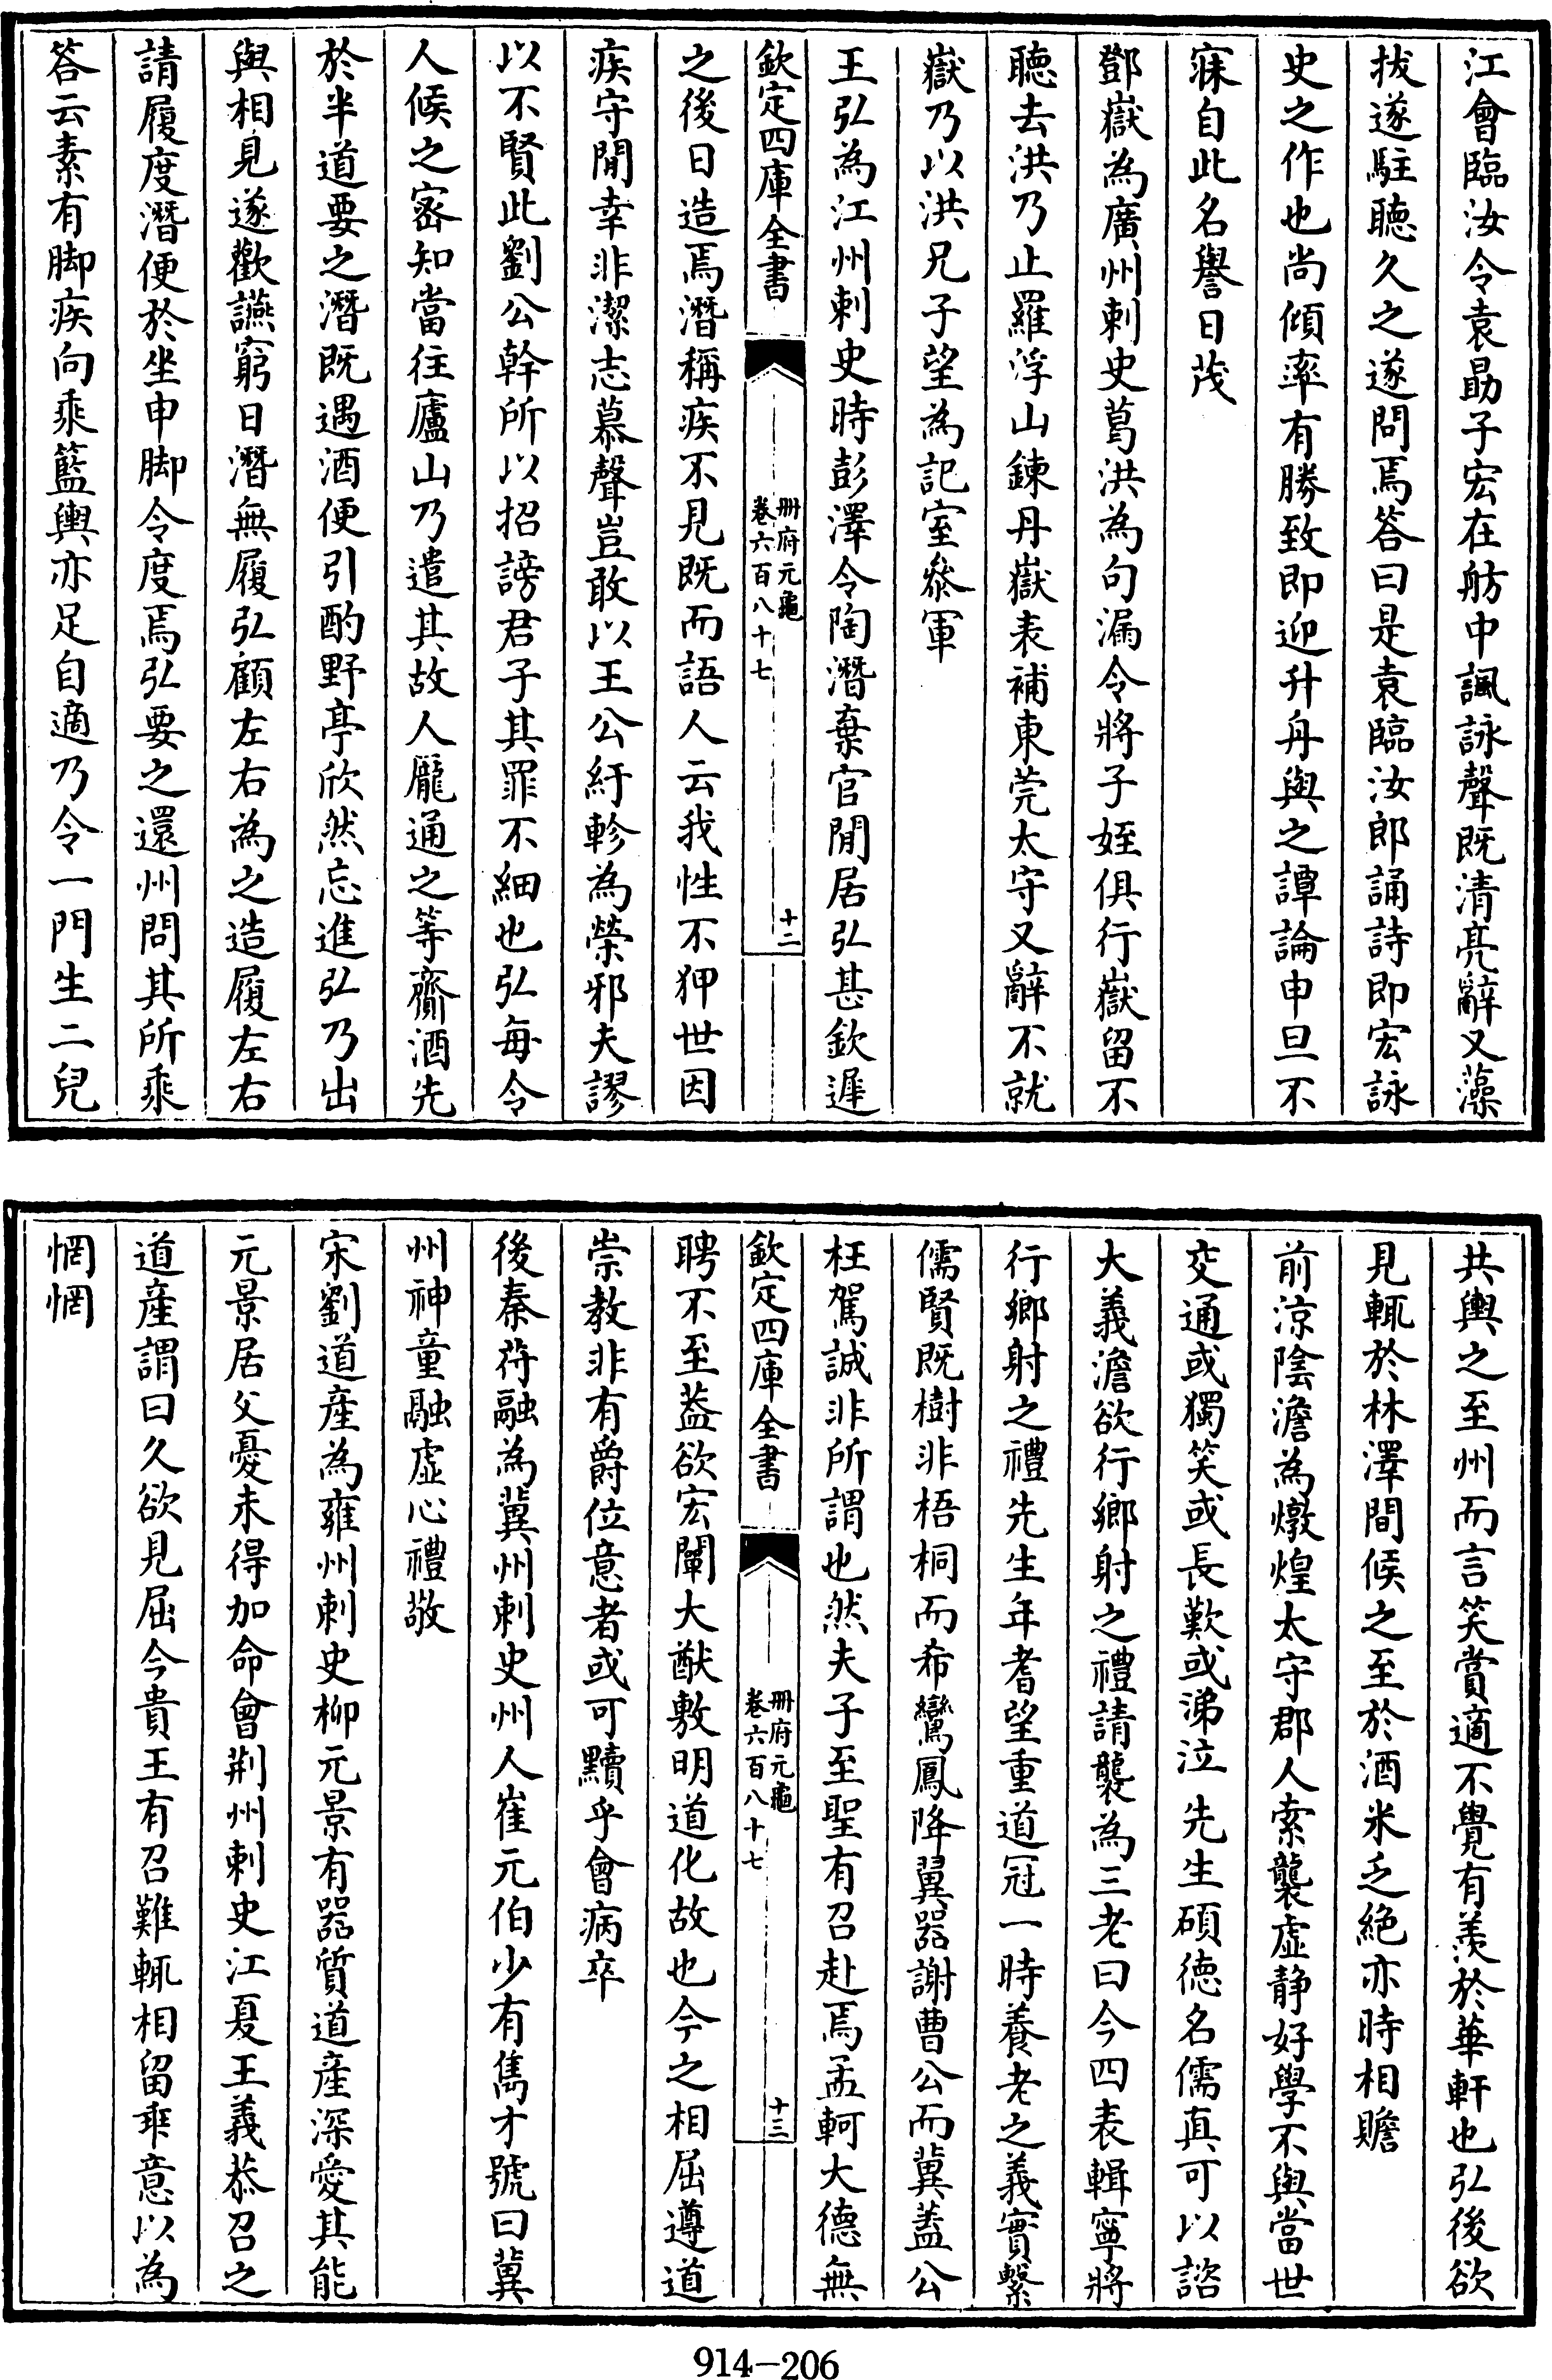 江會臨汝令袁勗子宏在舫中諷詠聲既清亮辭又藻
拔遂駐聽久之遂問焉答曰是袁臨汝郎誦詩即宏詠
史之作也尚傾率有勝致即迎升舟與之譚論申旦不
寐自此名譽日茂
鄧嶽為廣州刺史葛洪為句漏令將子姪俱行嶽留不
聽去洪乃止羅浮山鍊丹嶽表補東莞太守又辭不就
嶽乃以洪兄子望為記室叅軍
王弘為江州刺史時彭澤令陶潛棄官閒居弘甚欽遲
欽定四庫全書
冊府元龜
卷六百八十七
十二
之後日造焉潛稱疾不見既而語人云我性不狎世因
疾守閒幸非潔志慕聲豈敢以王公紆軫為榮邪夫謬
以不賢此劉公幹所以招謗君子其罪不細也弘每令
人候之宻知當往廬山乃遣其故人龎通之等齎酒先
於半道要之潛既遇酒便引酌野亭欣然忘進弘乃出
與相見遂歡讌窮日潛無履弘顧左右為之造履左右
請履度潛便於坐申脚令度焉弘要之還州問其所乘
答云素有脚疾向乘籃輿亦足自適乃令一門生二兒
共輿之至州而言笑賞適不覺有羨於華軒也弘後欲
見輒於林澤間候之至於酒米乏絶亦時相贍
前涼陰澹為燉煌太守郡人索襲虚静好學不與當世
交通或獨笑或長歎或涕泣先生碩徳名儒真可以諮
大義澹欲行鄉射之禮請襲為三老曰今四表輯寧將
行鄉射之禮先生年耆望重道冠一時養老之義實繫
儒賢既樹非梧桐而希鸞鳳降翼器謝曹公而冀蓋公
枉駕誠非所謂也然夫子至聖有召赴焉孟軻大德無
欽定四庫全書
冊府元龜
卷六百八十七
十三
聘不至葢欲宏闡大猷敷明道化故也今之相屈遵道
崇教非有爵位意者或可黷乎會病卒
後秦苻融為冀州刺史州人崔元伯少有雋才號曰冀
州神童融虚心禮敬
宋劉道産為雍州刺史柳元景有器質道産深愛其能
元景居父憂未得加命會荆州刺史江夏王義恭召之
道産謂曰久欲見屈今貴王有召難輒相留乖意以為
惘惘
914-206